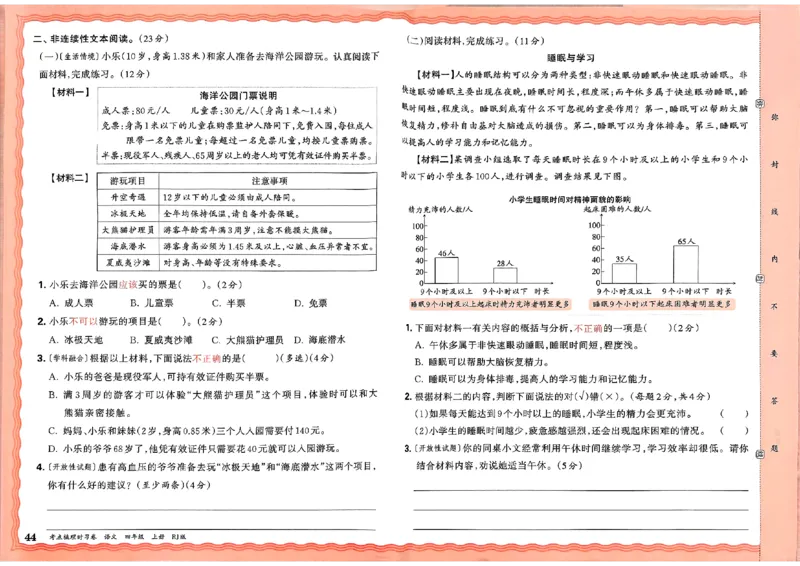 二、非连续性文本阅读。(23分)
(一)(生活情境)小乐(10岁,身高1.38米)和家人准备去海洋公园游玩。认真阅读下
面材料,完成练习。(12分)
【材料一】
海洋公园门票说明
成人票:80元/人 儿童票:30元/人(身高1米~1.4米)
免票:身高1米以下的儿童在购票监护人陪同下,免费入园,每位成人
限带一名免票儿童;每超过一名免票儿童,均按儿童票购票。
半票:现役军人、残疾人、65周岁以上的老人均可凭有效证件购买半票。
【材料二】
游玩项目 注意事项
升空奇遇 12岁以下的儿童必须由成人陪同。
冰极天地 全年均保持低温,请自备外套保暖。
大熊猫护理员 游客年龄需年满3周岁,注意不能摸大熊猫。
海底潜水 游客身高必须为1.45米及以上,心脏、血压异常者不宜。
夏威夷沙滩 对身高、年龄等没有特殊要求。
1. 小乐去海洋公园应该买的票是( )。(2分)
A. 成人票 B. 儿童票 C. 半票 D. 免票
2. 小乐不可以游玩的项目是( )。(2分)
A. 冰极天地 B. 夏威夷沙滩 C. 大熊猫护理员 D. 海底潜水
3. (学科融合)根据以上材料,下面说法不正确的是( )(多选)(4分)
A. 小乐的爸爸是现役军人,可持有效证件购买半票。
B. 满3周岁的游客才可以体验“大熊猫护理员”这个项目,体验时可以和大
熊猫亲密接触。
C. 妈妈、小乐和妹妹(2岁,身高0.85米)三个人入园需要付140元。
D. 小乐的爷爷68岁了,他凭有效证件只需要花40元就可以入园游玩。
4. (开放性试题)患有高血压的爷爷准备去玩“冰极天地”和“海底潜水”这两个项目,
你有什么好的建议?(至少两条)(4分)
44 考点梳理时习卷 语文 四年级 上册 RJ版
(二)阅读材料,完成练习。(11分)
睡眠与学习
【材料一】人的睡眠结构可以分为两种类型:非快速眼动睡眠和快速眼动睡眠。非
快速眼动睡眠主要出现在夜晚,睡眠时间长,程度深;而午休多属于快速眼动睡眠,睡
眠时间短,程度浅。睡眠到底有什么不可忽视的重要作用?第一,睡眠可以帮助大脑
恢复精力,修补自由基对大脑造成的损伤。第二,睡眠可以为身体排毒。第三,睡眠可
以提高人的学习能力和记忆能力。
【材料二】某调查小组选取了每天睡眠时长在9个小时及以上的小学生和9个小
时以下的小学生各100人,进行调查。调查结果见下图。
小学生睡眠时间对精神面貌的影响
精力充沛的人数/人 起床困难的人数/人
100 100
80 80
60 60
40 40
20 20
0 0
46人 28人 35人 65人
9个小时及以上 9个小时以下 时长 9个小时及以上 9个小时以下 时长
睡眠9个小时及以上起床时精力充沛者明显更多 睡眠9个小时以下起床困难者明显更多
1. 下面对材料一有关内容的概括与分析,不正确的一项是( )(2分)
A. 午休多属于非快速眼动睡眠,睡眠时间短,程度浅。
B. 睡眠可以帮助大脑恢复精力。
C. 睡眠可以为身体排毒,提高人的学习能力和记忆能力。
2. 根据材料二的内容,判断下面说法的对(√)错(×)。(每题2分,共4分)
(1)如果每天能达到9个小时以上的睡眠,小学生的精力会更充沛。 ( )
(2)小学生的睡眠时间越少,疲惫感越强烈,还会出现起床困难的情况。 ( )
3. (开放性试题)你的同桌小文经常利用午休时间继续学习,学习效率却很低。请你
结合材料内容,劝说她适当午休。(5分)
弥
封
线
内
不
要
答
题